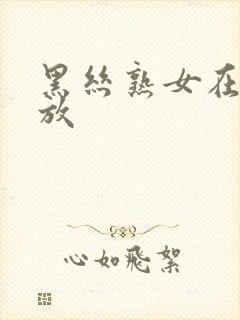 黑丝熟女在
放
心如飛絮